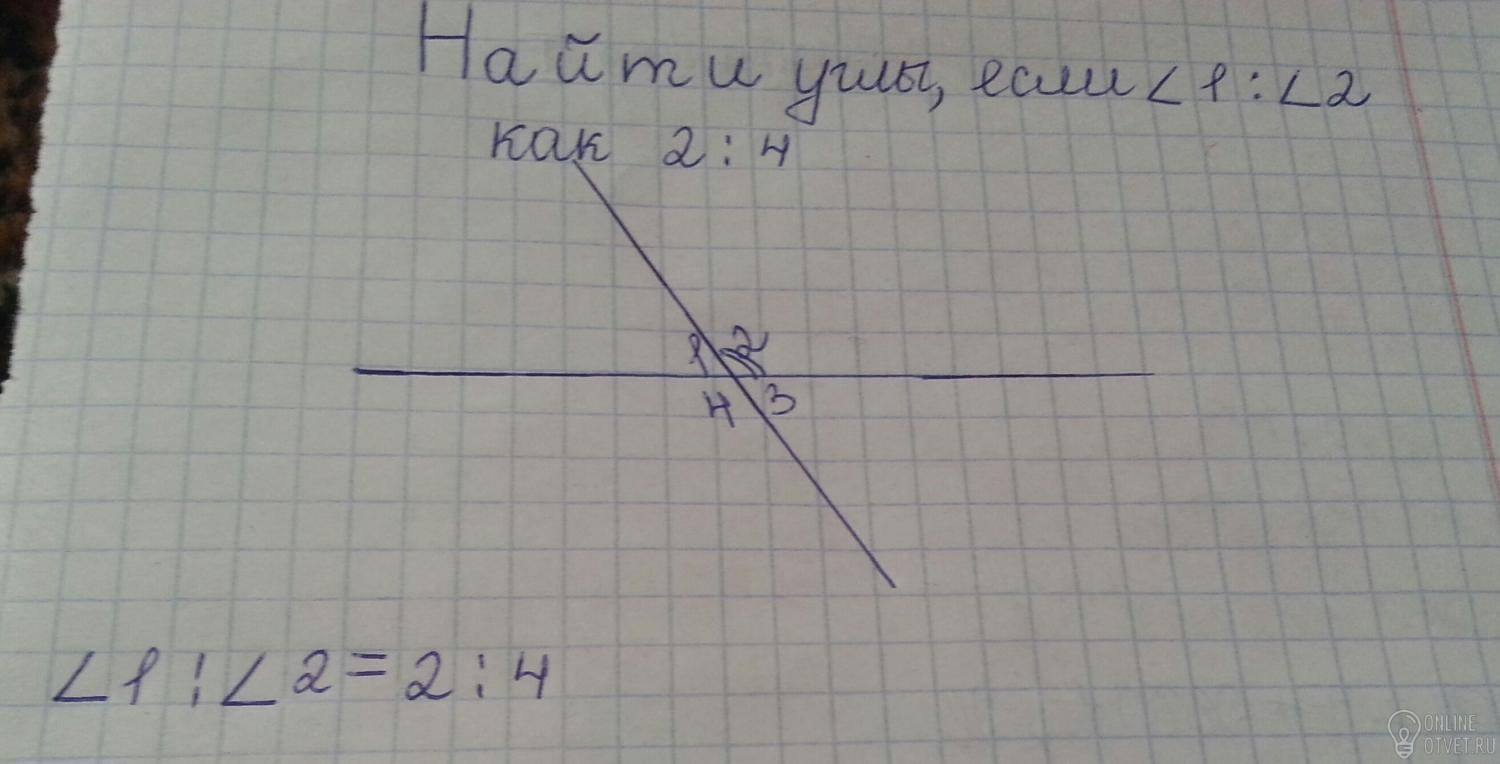 Найти углы, если ∠1:∠2
как 2:4
1 2
4 3
∠1:∠2=2:4
ONLINE
OTVET.RU